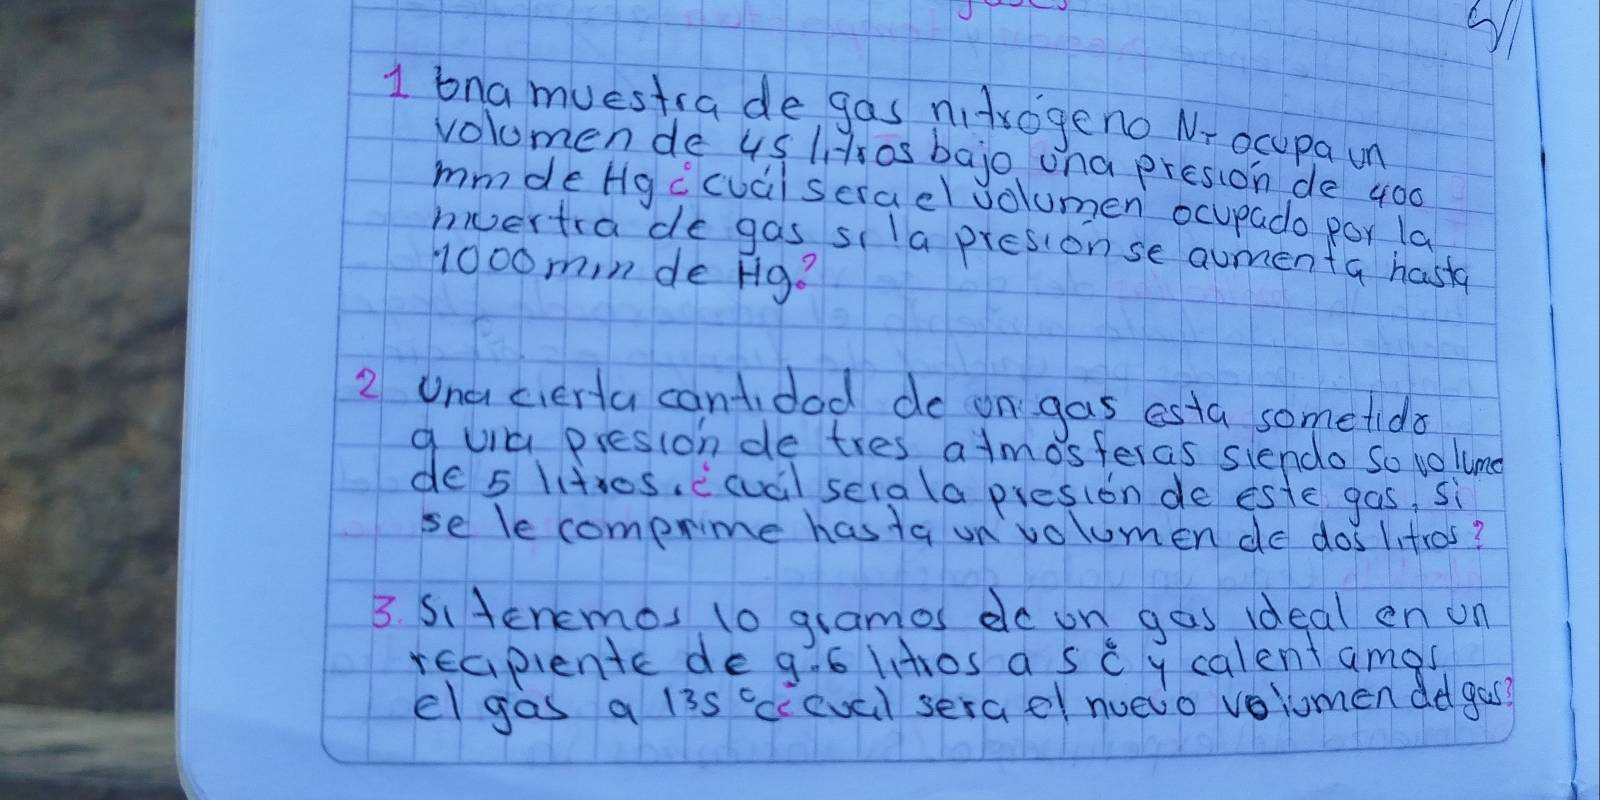 1 Una muestra de gas nitrógeno N- ocupa un
volumen de 45 litros bajo una presión de 400
mm de Hg ¿cuál sera el volumen ocupado por la
muertra de gas si la presion se aumenta hasta
1000 min de Hg?
2 Una cierta cantidad de un gas esta sometido
a una presión de tres atmósferas siendo so volume
de 5 litros. ¿cuál sera la presión de este gas, si
se le comprime hasta un volumen de dos litros?
3. Si tenemos 10 gramos de un gas ideal en un
recipiente de 9.6 litros a 5 c y calentamos
el gas a 135 °c ¿cual sera el nuevo volumen del gas?